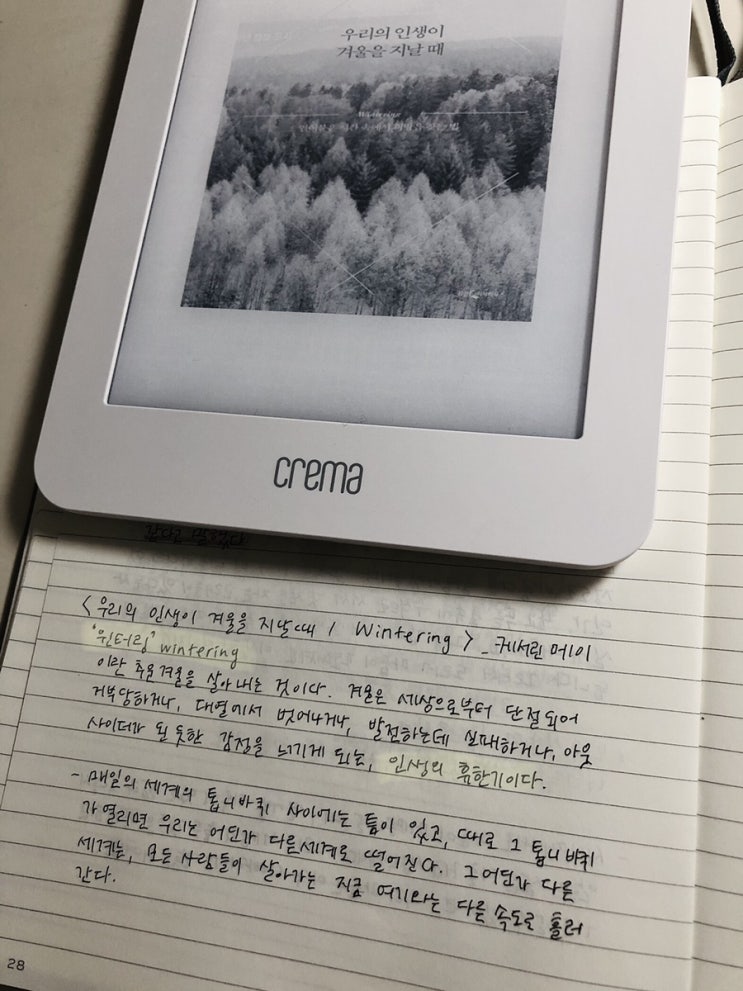 우리의 인생이
겨울을 지날 때
Wintering
crema
같다고 말했다
<우리의 인생이 겨울을 지날 때 / Wintering> _캐서린 메이
'윈터링' wintering
이란 추운 겨울을 살아내는 것이다. 겨울은 세상으로부터 단절되어
거부당하거나, 대열에서 벗어나거나, 발전하는데 실패하거나, 아웃
사이더가 된 듯한 감정을 느끼게 되는, 인생의 휴한기이다.
- 매일의 세계의 톱니바퀴 사이에는 틈이 있고, 때로 그 톱니바퀴
가 열리면 우리는 어딘가 다른세계로 떨어진다. 그 어딘가 다른
세계는, 모든 사람들이 살아가는 지금 여기와는 다른 속도로 흘러
간다.
28